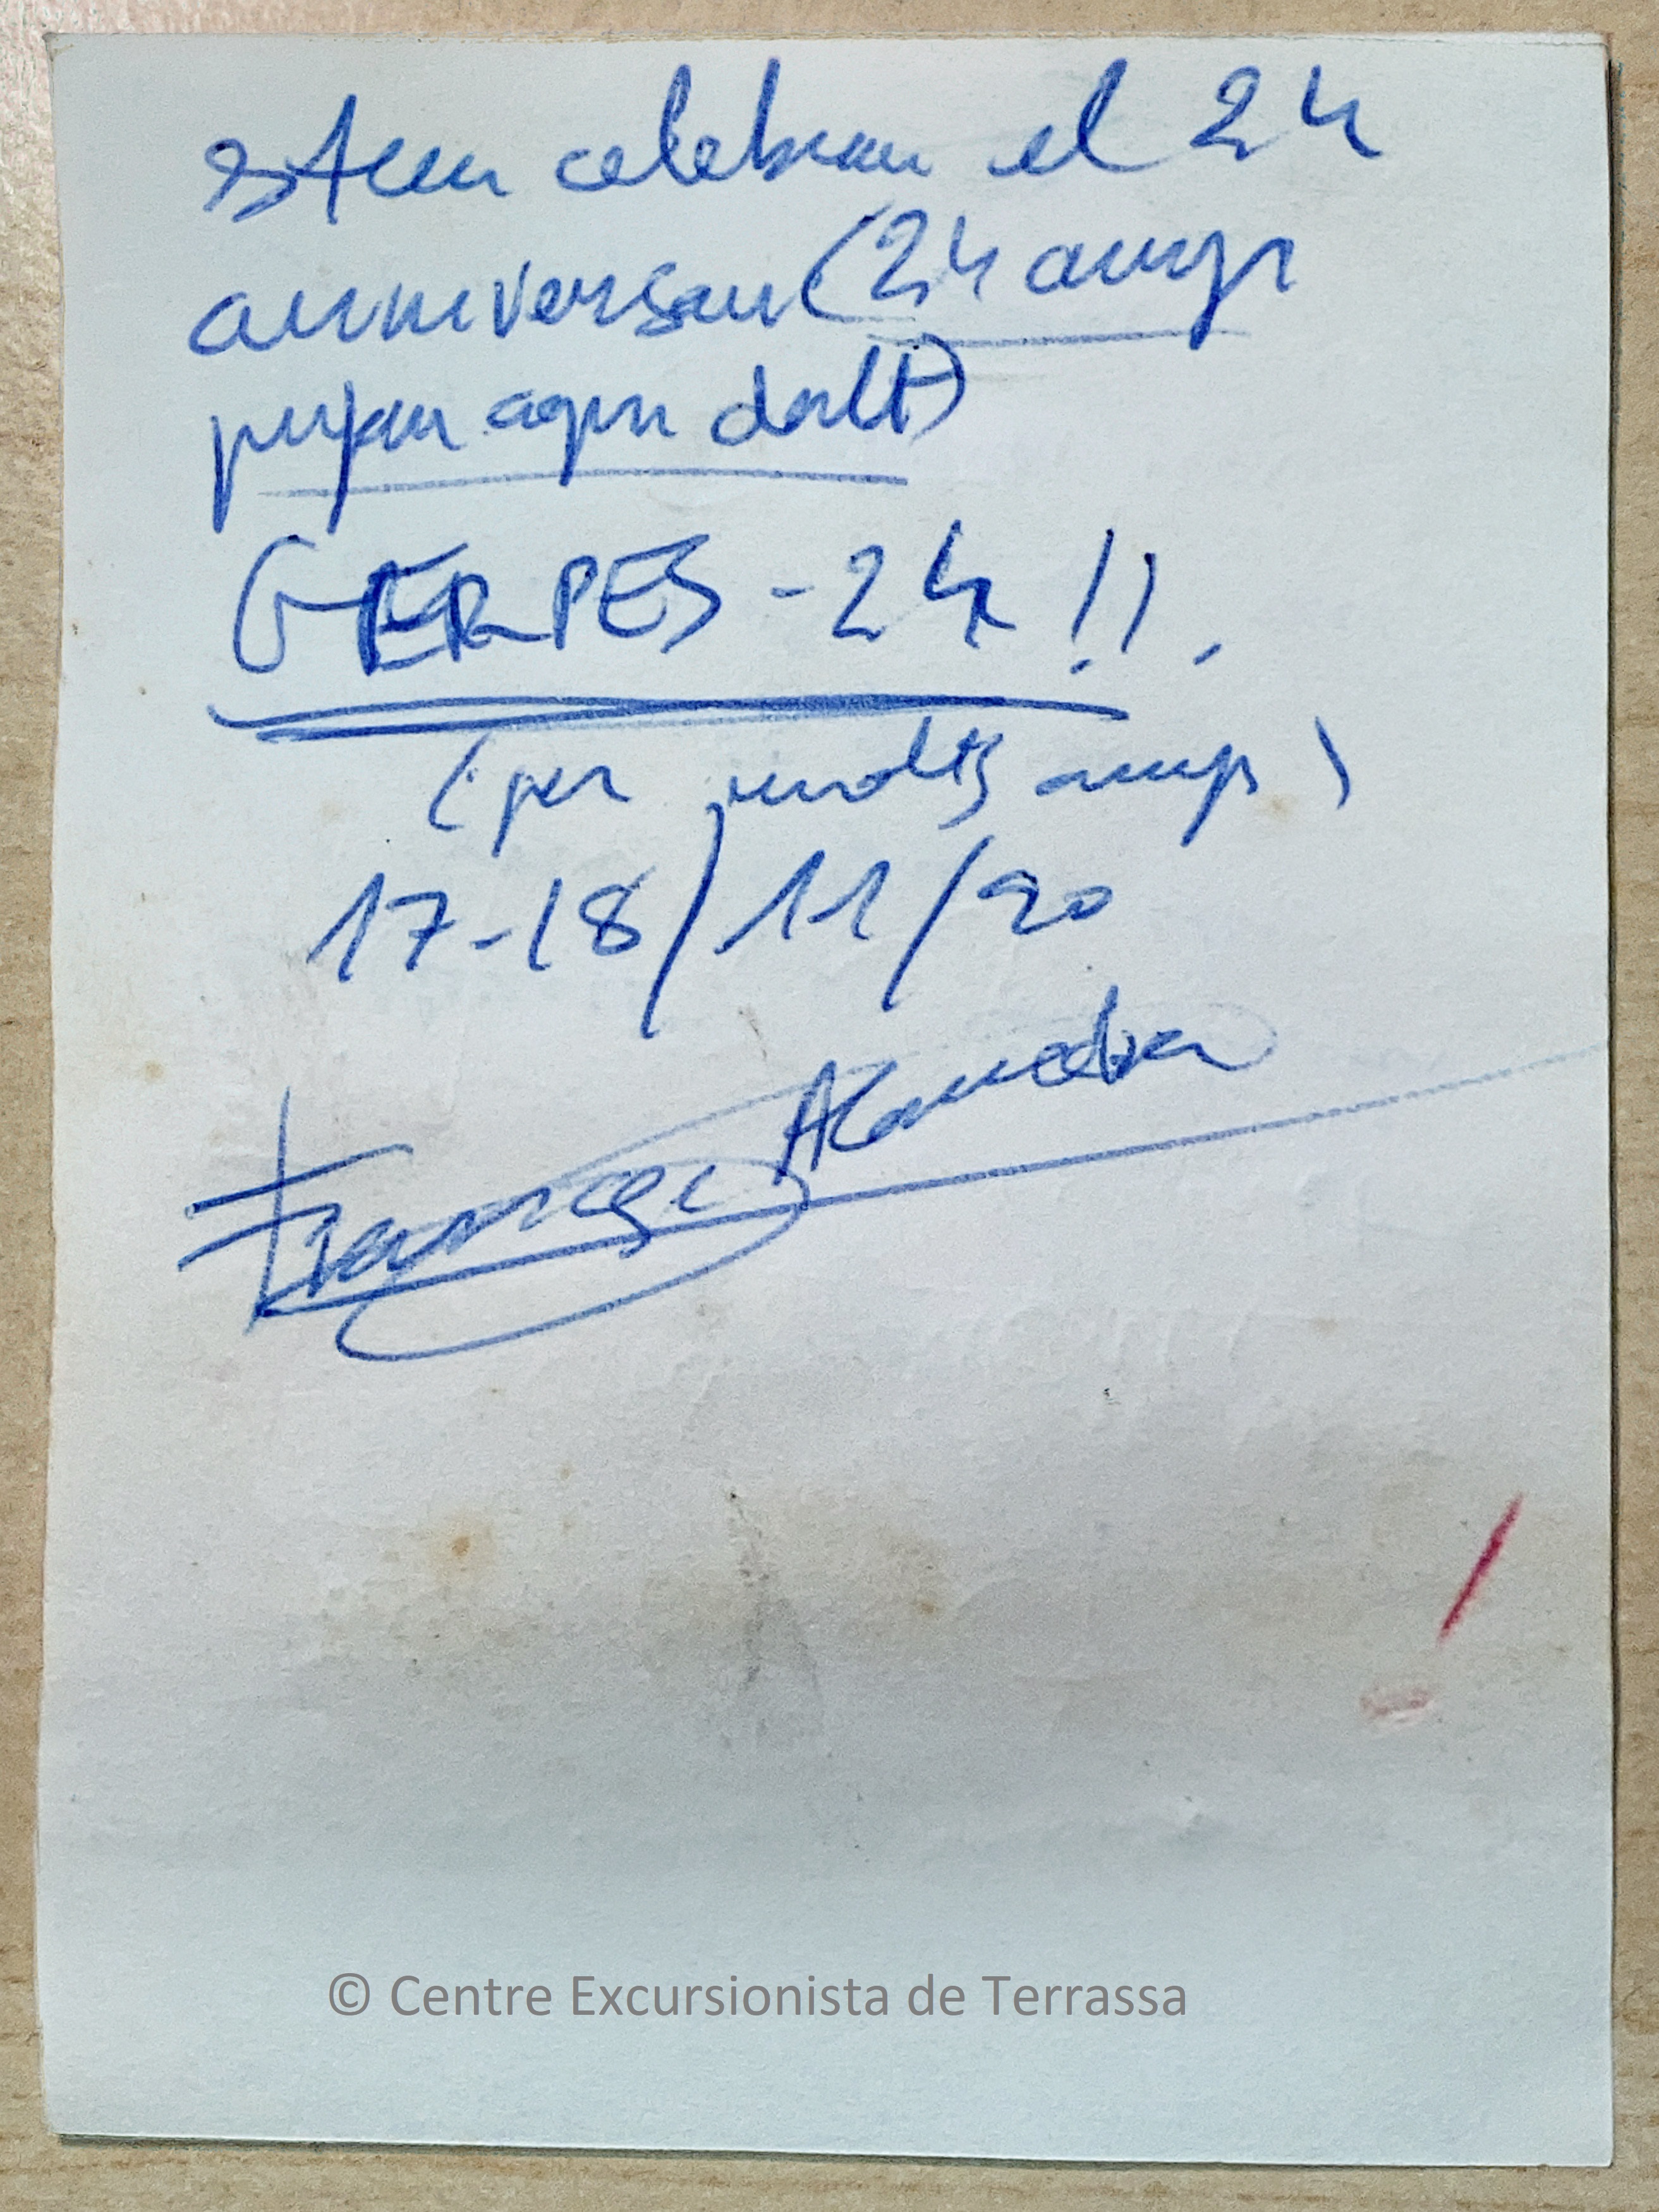 estem celebran el 24
anniversari (24 anys
pujan aqui dalt)
GERPES - 24 !!.
(per molts anys)
17-18/11/90
Francesc
© Centre Excursionista de Terrassa